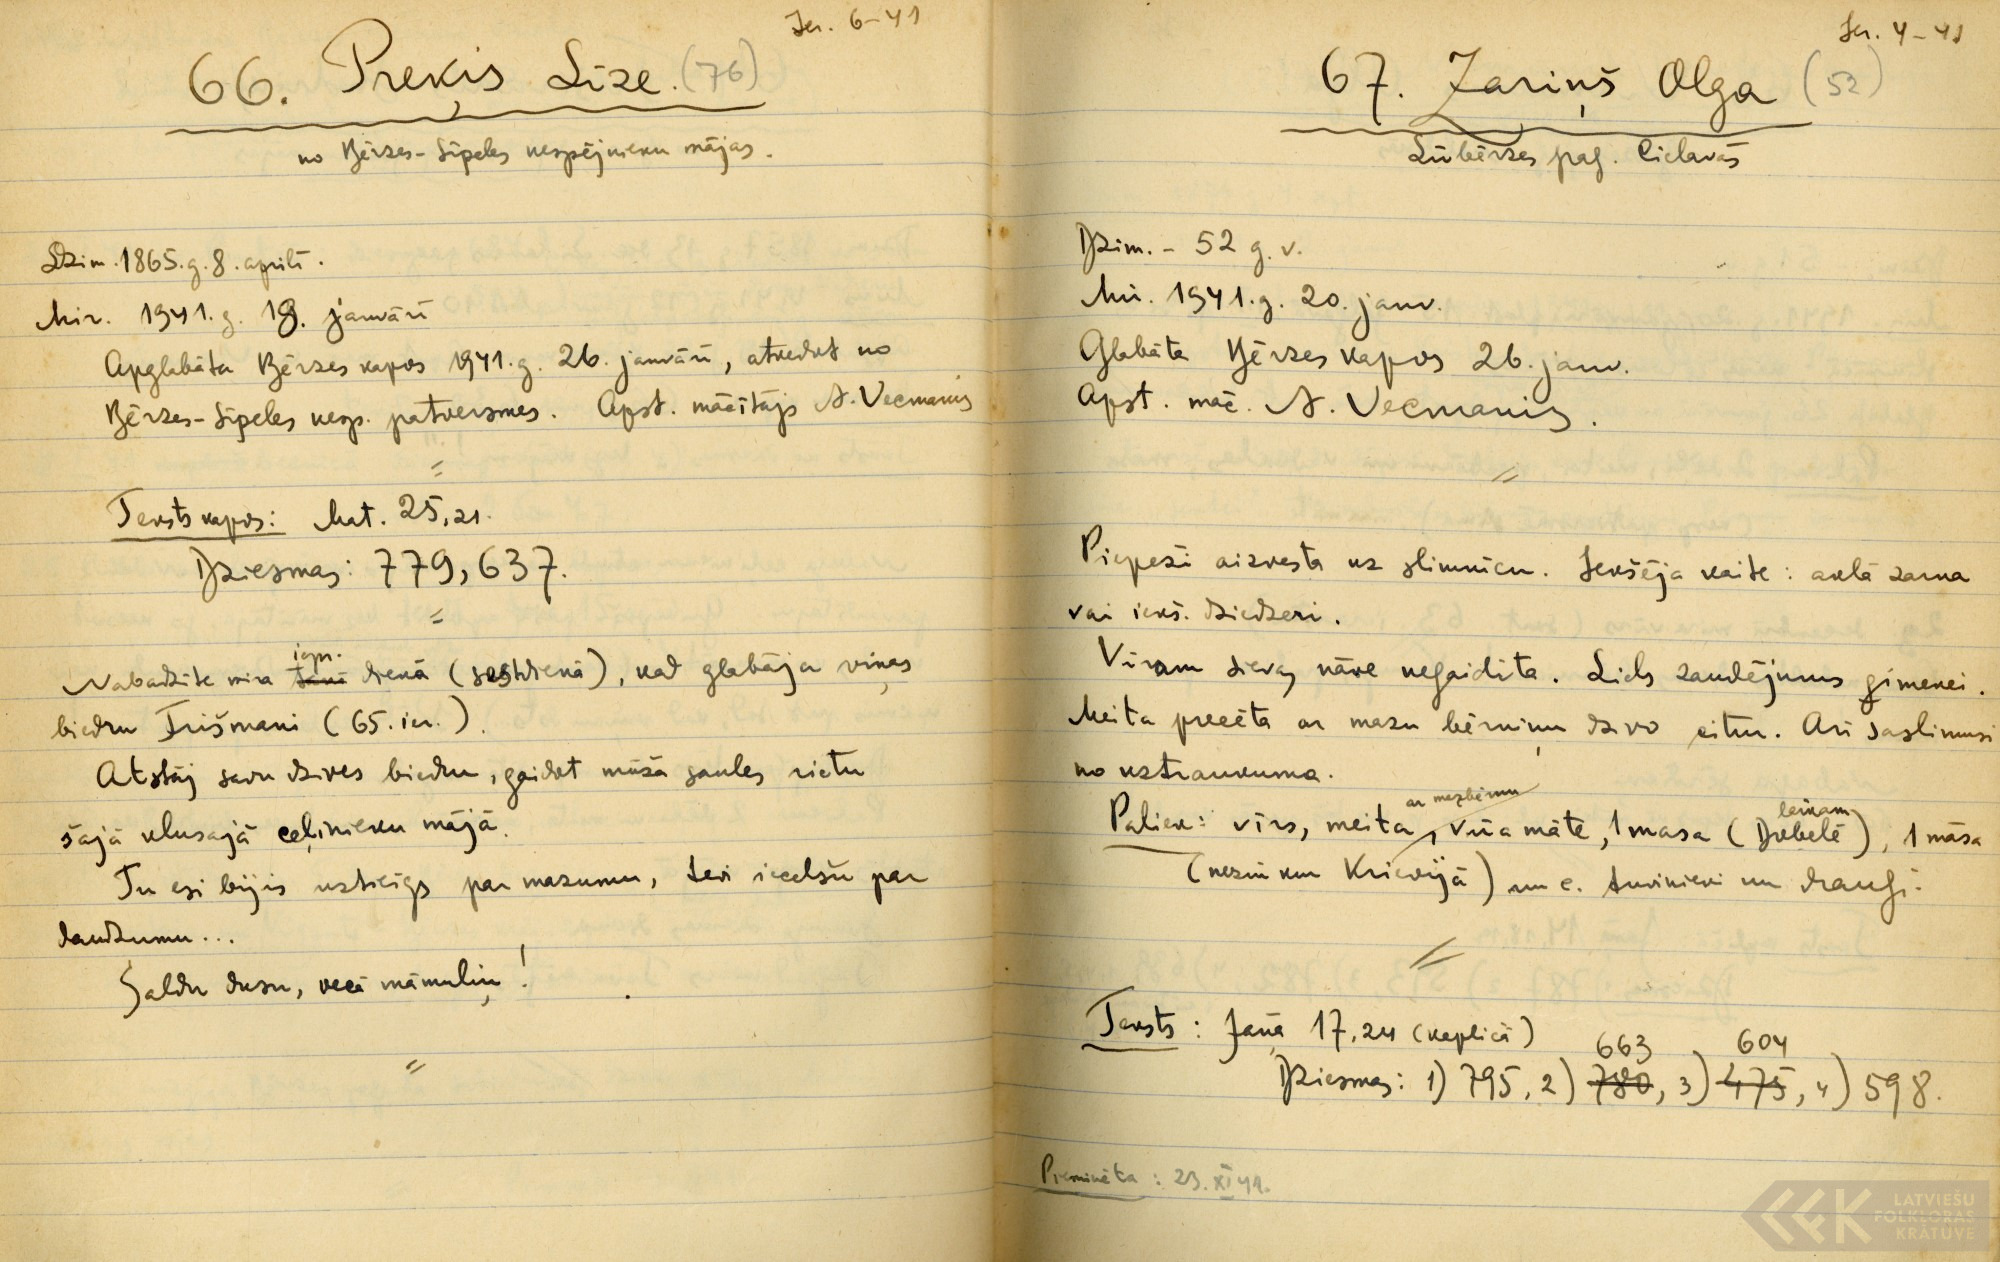 Ier. 6-41
66. Preķis Līze. (76)
no Bērzes-Sīpeles nespējnieku mājas.
Dzim. 1865. g. 8. aprīlī.
Mir. 1941. g. 18. janvārī
Apglabāta Bērzes kapos 1941. g. 26. janvārī, atvedot no
Bērzes-Sīpeles nesp. patversmes. Apst. mācītājs A. Vecmanis
=
Teksts kapos: Mat. 25,21.
Dziesmas: 779, 637.
=
iepr.
Nabadzīte mira dienā (sestdienā), kad glabāja viņas
biedru Trišmani (65. ier.).
Atstāj savu dzīves biedru, gaidot mūža saules rietu
šajā klusajā ceļinieku mājā.
Tu esi bijis uzticīgs par mazumu, tevi iecelšu par
daudzumu...
Saldu dusu, vecā māmuliņ!
=
Ier. 4-41
67. Zariņš Olga (52)
Līvbērzes pag. Cielavās
Dzim. - 52 g. v.
Mir. 1941. g. 20. janv.
Glabāta Bērzes kapos 26. janv.
Apst. māc. A. Vecmanis.
=
Piepeži aizvesta uz slimnīcu. Iekšēja kaite: aklā zarna
vai iekš. dziedzeri.
Vīram sievas nāve negaidīta. Liels zaudējums ģimenei.
Meita precēta ar mazu bērniņu dzīvo citur. Arī saslimusi
no uztraukuma.
ar mazbērnu laikam
Paliek: vīrs, meita, vīra māte, 1 māsa (Dobelē), 1 māsa
(nezin kur Krievijā) un c. tuvinieki un draugi.
=
Teksts: Jāņa 17,24 (kaplicā)
663 604
Dziesmas: 1) 795, 2) 780, 3) 475, 4) 598.
Pieminēta: 23. XI 41.
LATVIEŠU
FOLKLORAS
KRĀTUVE